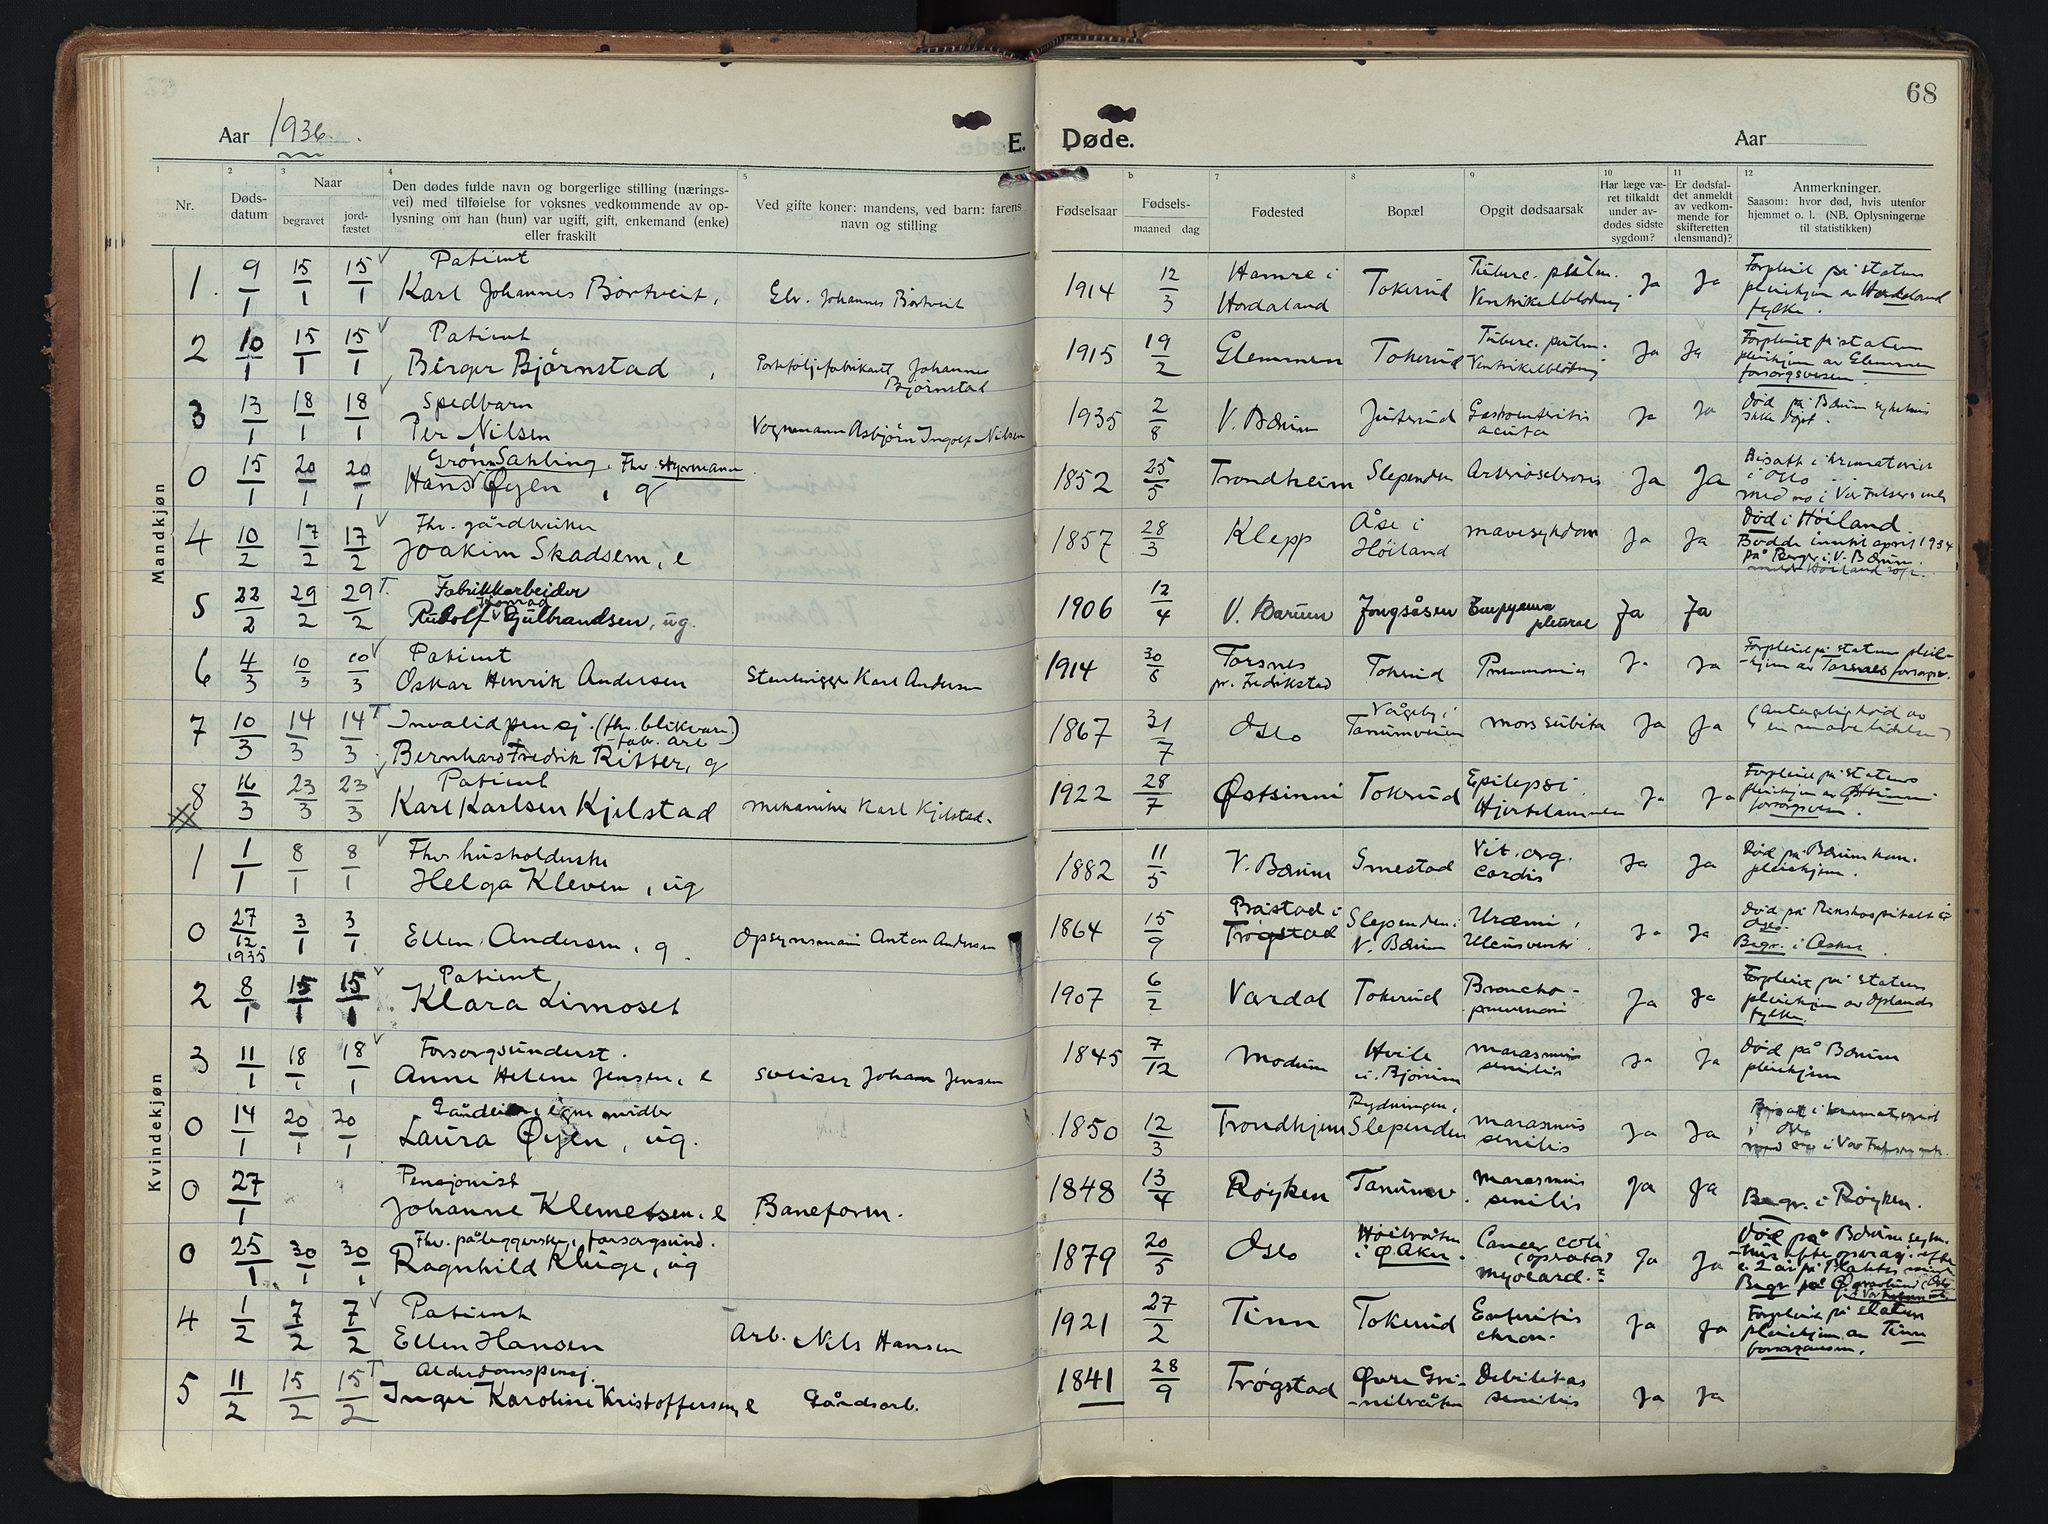 68
Aar 1936. E. Døde. Aar
Mandkjøn
Kvindekjøn
1 2 3 4 5 b 7 8 9 10 11 12
Nr.
Døds-
datum
Naar
begravet
jord-
fæstet
Den dødes fulde navn og borgerlige stilling (nærings-
vei) med tilføielse for voksnes vedkommende av op-
lysning om han (hun) var ugift, gift, enkemand (enke)
eller fraskilt
Ved gifte koner: mandens, ved barn: farens
navn og stilling
Fødselsaar
Fødsels-
maaned dag
Fødested
Bopæl
Opgit dødsaarsak
Har læge væ-
ret tilkaldt
under av-
dødes sidste
sygdom?
Er dødsfal-
det anmeldt
av vedkom-
mende for
skifteretten
(lensmand)?
Anmerkninger.
Saasom: hvor død, hvis utenfor
hjemmet o. l. (NB. Oplysningerne
til statistikken)
1. 9/1 15/1 15/1 Patient
Karl Johannes Børtveit, Johannes Børtveit 1914 12/3 Hamre i
Hordaland Tokerud Tuberc. pulm.
Ventrikelblødning. Ja Ja Forpleiet på statens
pleiehjem av Hordaland
fylke.
2 10/1 15/1 15/1 Patient
Birger Bjørnstad, Porteføljefabrikant Johannes
Bjørnstad 1915 19/2 Glemmen Tokerud Tuberc. pulm.
Ventrikelblødning Ja Ja Forpleiet på statens
pleiehjem av Glemmen
forsorgsvesen.
3 13/1 18/1 18/1 Spedbarn
Per Nilsen Vognmann Asbjørn Ingolf Nilsen 1935 2/8 V. Bærum Jutterud Gastroenteritis
acuta Ja Ja Død på Bærum sykehus
Ikke døpt.
0 15/1 20/1 20/1 Grønn Sahling. Fhv. styrmann
Hans Øyen, g 1852 25/5 Trondheim Slependen Arteriosclerosis Ja Ja Bisatt i krematoriet
i Oslo
med uro i Vår Frelsers
4 10/2 17/2 17/2 Fhv. gårdbruker
Joakim Skadsem, e 1857 28/3 Klepp Åse i
Høiland mavesykdom Ja Ja Død i Høiland.
Bodde inntil april 1934
på Berger i V. Bærum.
5 22/2 29/2 29/2 Fabrikkarbeider
Konrad
Rudolf Gulbrandsen, ug. 1906 12/4 V. Bærum Jongsåsen Empyema
pleurae Ja Ja
6 4/3 10/3 10/3 Patient
Oskar Henrik Andersen Stenhugger Karl Andersen 1914 30/6 Torsnes
pr. Fredrikstad Tokerud Pneumonia Ja Ja Forpleiet på statens pleie-
hjem av Torsnes forsorgsv.
7 10/3 14/3 14/3 Invalidpensj. (fhv. blikvare-
fab. arb.)
Bernhard Fredrik Ritter, g 1867 31/7 Oslo Vågeby i
Tanumveien mors subita Ja Ja (Antagelig død av
en mavelidelse)
8 16/3 23/3 23/3 Patient
Karl Karlsen Kjelstad mekaniker Karl Kjelstad. 1922 28/7 Østsinni Tokerud Epilepsi.
Hjertelammelse Ja Ja Forpleiet på statens
pleiehjem av Østsinni
forsorgsvesen.
1 1/1 8/1 8/1 Fhv. husholderske
Helga Kleven, ug 1882 11/5 V. Bærum Smestad Vit. org.
cordis Ja Ja Død på Bærum kom.
pleiehjem.
0 27/12 1935 3/1 3/1 Ellen Andersen, g. Opsynsmann Anton Andersen 1864 15/9 Båstad i
Trøgstad Slependen i
V. Bærum Uræmi,
Ulcus ventr. Ja Ja Død på Rikshospitalet i
Oslo
Begr. i Asker
2 8/1 15/1 15/1 Patient
Klara Limoset 1907 6/2 Vardal Tokerud Broncho-
pneumoni Ja Ja Forpleiet på statens
pleiehjem av Oplands
fylke.
3 11/1 18/1 18/1 Forsorgsunderst.
Anne Helene Jensen, e sveiser Johan Jensen 1845 7/12 Modum Hvile
v. Bjørum marasmus
senilis Ja Ja Død på Bærum
pleiehjem
0 14/1 20/1 20/1 egne midler
Laura Øyen, ug. 1850 12/3 Trondhjem Rydningen,
Slependen marasmus
senilis Ja Ja Bisatt i krematoriet
i Oslo
0 27/1 Pensjonist
Johanne Klemetsen, e Baneform. 1848 13/4 Røyken Tanumv. marasmus
senilis Ja Ja Begr. i Røyken.
0 25/1 30/1 30/1 Fhv. påleggerske, forsorgsund.
Ragnhild Kluge, ug 1879 20/5 Oslo Høibråten
i Ø. Aker. Cancer coli
(operata)
myocard. Ja Ja Død på Bærum syke-
4 1/2 7/2 7/2 Patient
Ellen Hansen Arb. Nils Hansen 1921 27/2 Tinn Tokerud Enteritis
chron. Ja Ja Forpleiet på statens
pleiehjem av Tinn
forsorgsvesen.
5 11/2 15/2 15/2 Alderdomspensj.
Inger Karoline Kristoffersen, e Gårdsarb. 1841 28/9 Trøgstad Øvre Gri-
nibråten Debilitas
senilis Ja Ja